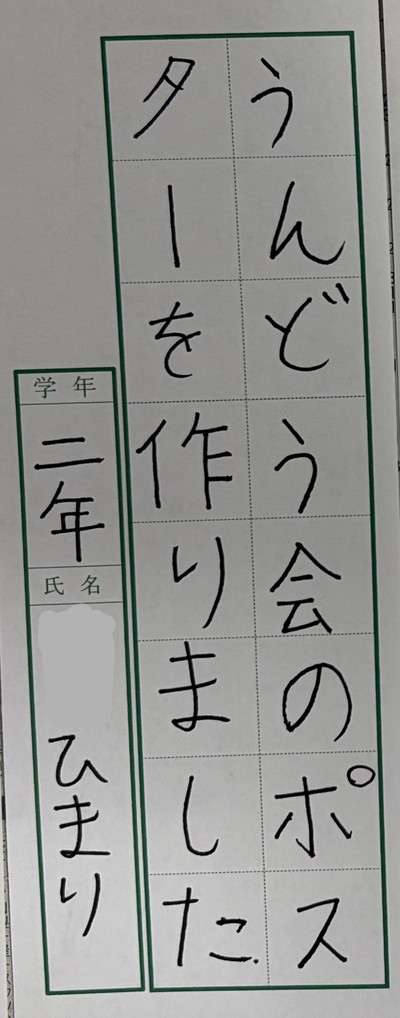 うんどう会のポス
ターを作りました
学年
二年
氏名
ひまり